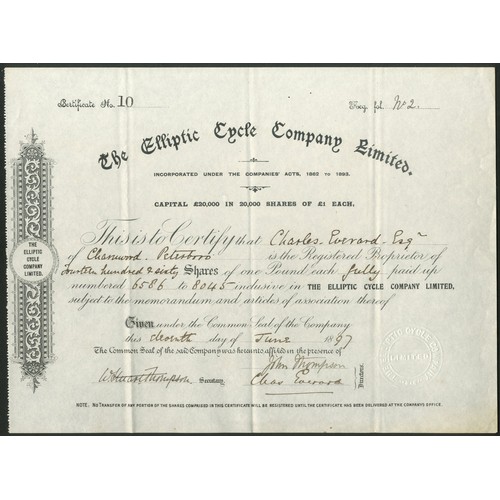 Certificate No. 10
Reg. fol. No 2.
The Elliptic Cycle Company Limited.
INCORPORATED UNDER THE COMPANIES' ACTS, 1862 TO 1893.
CAPITAL £20,000 IN 20,000 SHARES OF £1 EACH.
This is to Certify that Charles Everard Esqr
of Charnwood Peterboro is the Registered Proprietor of
fourteen hundred & sixty Shares of one Pound each fully paid up
numbered 6586 to 8045 inclusive in THE ELLIPTIC CYCLE COMPANY LIMITED,
subject to the memorandum and articles of association thereof
Given under the Common Seal of the Company
this eleventh day of June 1897
The Common Seal of the said Company was hereunto affixed in the presence of
John Thompson
Thompson Secretary
Chas Everard
Directors
NOTE. NO TRANSFER OF ANY PORTION OF THE SHARES COMPRISED IN THIS CERTIFICATE WILL BE REGISTERED UNTIL THE CERTIFICATE HAS BEEN DELIVERED AT THE COMPANY'S OFFICE.
THE
ELLIPTIC
CYCLE
COMPANY
LIMITED.
ELLIPTIC CYCLE
LIMITED